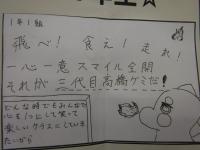 1年1組
飛べ！食え！走れ！
一心一意 スマイル全開
それが 三代目高橋ケミだ！
どんな時でもみんなで
心を1つにして笑って
楽しいクラスにしていき
たいから